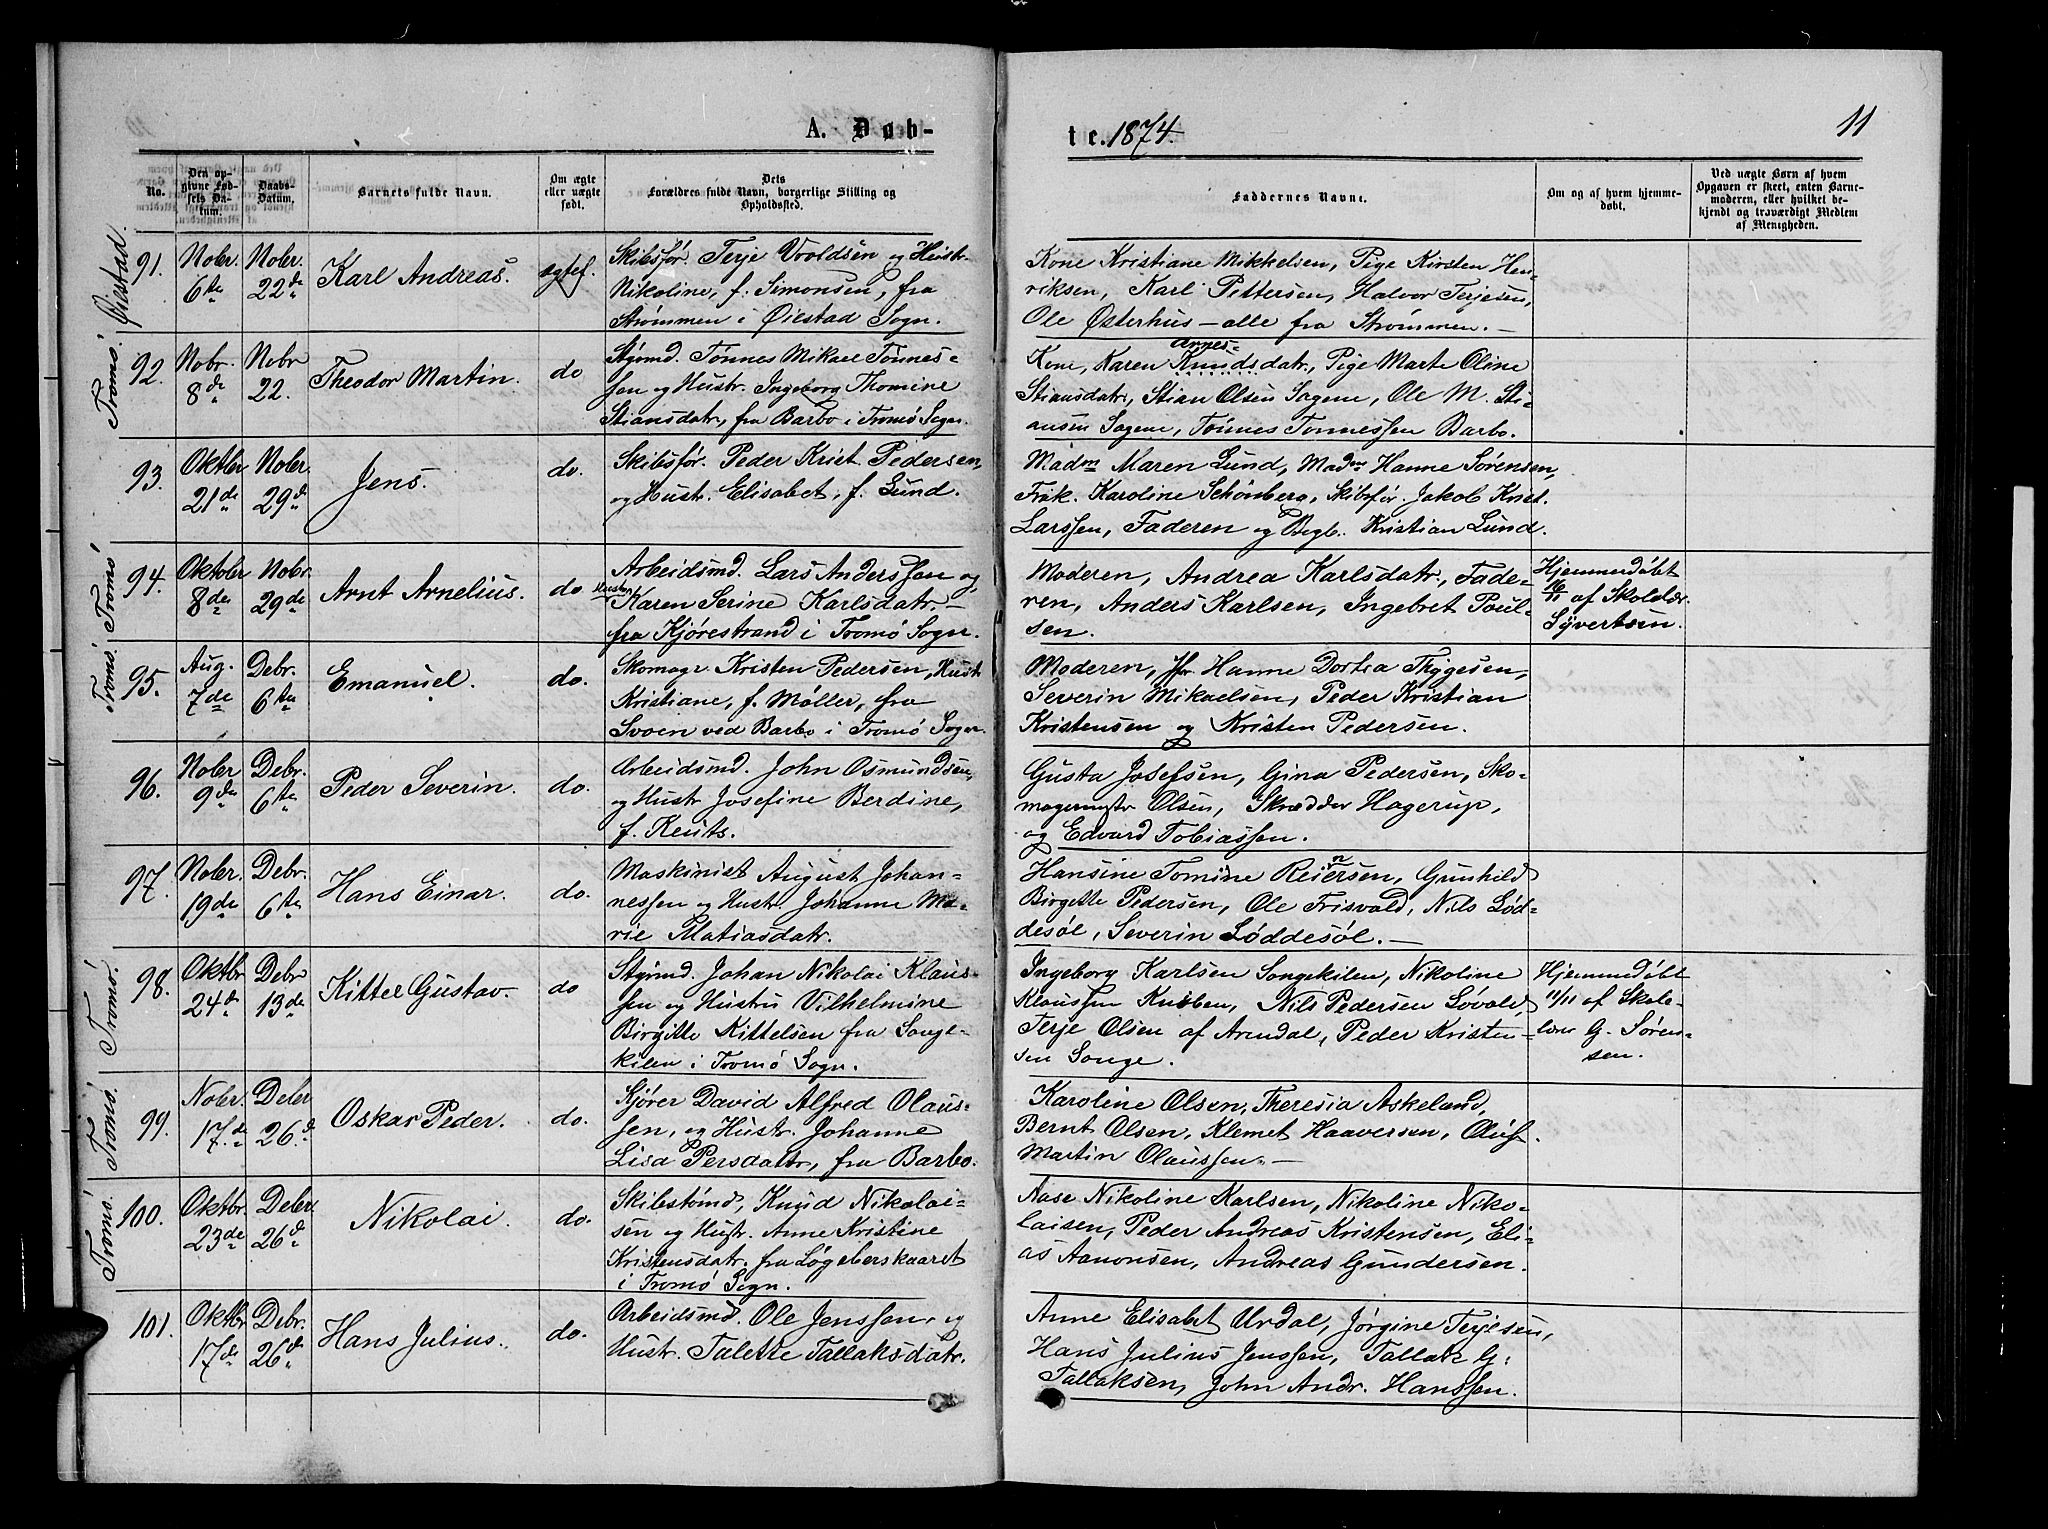 A. Døbte. 1874.
11
No.
Den opgivne Fødsels Datum.
Daabs-Datum.
Barnets fulde Navn.
Om ægte eller uægte født.
Dets Forældres fulde Navn, borgerlige Stilling og Opholdssted.
Faddernes Navne.
Om og af hvem hjemmedøbt.
Ved uægte Børn af hvem Opgaven er skeet, enten Barnemoderen, eller hvilket bekjendt og troværdigt Medlem af Menigheden.
Øiestad.
91.
Nober. 6te
Nober. 22de
Karl Andreas.
ægtef.
Skibsfør. Terje Vroldsen og Hustr.
Nikoline, f. Simonsen, fra
Strømmen i Øiestad Sogn.
Kone Kristiane Mikkelsen, Pige Kirsten Hen-
riksen, Karl Pettersen, Halvor Terjesen,
Ole Østerhus - alle fra Strømmen. -
Tromø.
92.
Nobr. 8de
Nobr. 22.
Theodor Martin.
do
Styrmd. Tönnes Mikael Tönnes-
sen og Hustr. Ingeborg Thomine
Stiansdatr., fra Barbo i Tromø Sogn.
Arnes-
Kone, Karen Knudsdatr., Pige Marte Oline
Stiansdatr, Stian Olsen Sagene, Ole M. Sti-
ansen Sagene, Tönnes Tönnessen Barbo.
93.
Oktbr. 21de
Nober. 29d
Jens.
do.
Skibsfør. Peder Krist. Pedersen,
og Hustr. Elisabet, f. Lund.
Madm Maren Lund, Madm Hanne Sørensen,
Frøk. Karoline Schönberg, Skibsfør. Jakob Krist.
Larssen, Faderen og Begb. Kristian Lund.
Tromø
94.
Oktober 8de
Nobr. 29de
Arnt Arnelius.
do.
Arbeidsmd. Lars Anderssen og
Hustru
Karen Serine Karlsdatr. -
fra Kjørestrand i Tromø Sogn.
Moderen, Andrea Karlsdatr., Fade-
ren, Anders Karlsen, Ingebret Poul-
sen.
Hjemmedøbt
16/11 af Skolelær.
Syvertsen.
Tromø.
95.
Aug. 7de
Debr. 6te
Emanuel.
do.
Skomagr. Kristen Pedersen, Hustr
Kristiane, f. Møller, fra
Svoien ved Barbo i Tromø Sogn.
Moderen, Jfr. Hanne Dortea Thygesen,
Severin Mikaelsen, Peder Kristian
Kristensen og Kristen Pedersen.
96.
Nober 9de
Debr. 6te
Peder Severin.
do.
Arbeidsmd. John Osmundsen,
og Hustr Josefine Berdine,
f. Reuts.
Gusta Josefsen, Gina Pedersen, Sko-
magermstr Olsen, Skrædder Hagerup,
og Edvard Tobiassen.
97.
Nober. 19de
Debr. 6te
Hans Einar.
do.
Maskinist August Johan-
nessen og Hustr. Johanne Ma-
rie Matiasdatr.
Hansine Tomine Reiersen, Gunhild
Birgitte Pedersen, Ole Frisvold, Nils Lød-
desøl, Severin Løddesøl. -
Tromø.
98.
Oktbr 24de
Debr 13de
Kittel Gustav.
do
Styrmd. Johan Nikolai Klaus-
sen og Hustru Vilhelmine
Birgitte Kittelsen fra Songe-
kilen i Tromø Sogn.
Ingeborg Karlsen Songekilen, Nikoline
Klaussen Knibben, Nils Pedersen Løvold,
Terje Olsen af Arendal, Peder Kristen-
sen Songe.
Hjemmedøbt
11/11 af Skole-
lærer G. Søren-
sen.
Tromø.
99.
Nober. 17.de
Deber 26.d
Oskar Peder.
do.
Kjører David Alfred Olaus-
sen, og Hustr. Johanne
Lisa Persdattr, fra Barbo.
Karoline Olsen, Theresia Askeland,
Bernt Olsen, Klemet Haaversen, Oluf
Martin Olaussen. -
Tromø.
100.
Oktbr. 23de
Deber. 26d
Nikolai.
do.
Skibstømd, Knud Nikolai-
sen og Hustr. Anne Kristine
Kristensdatr. fra Løgeberskaaret
i Tromø Sogn.
Aase Nikoline Karlsen, Nikoline Niko-
laisen, Peder Andreas Kristensen, Eli-
as Aanonsen, Andreas Gundersen.
101.
Oktbr 17de
Debr. 26de
Hans Julius.
do.
Arbeidsmd. Ole Jenssen, og
Hustr. Talette Tallaksdatr.
Anne Elisabet Urdal, Jørgine Terjesen,
Hans Julius Jenssen, Tallak G.
Tallaksen, John Andr. Hanssen.